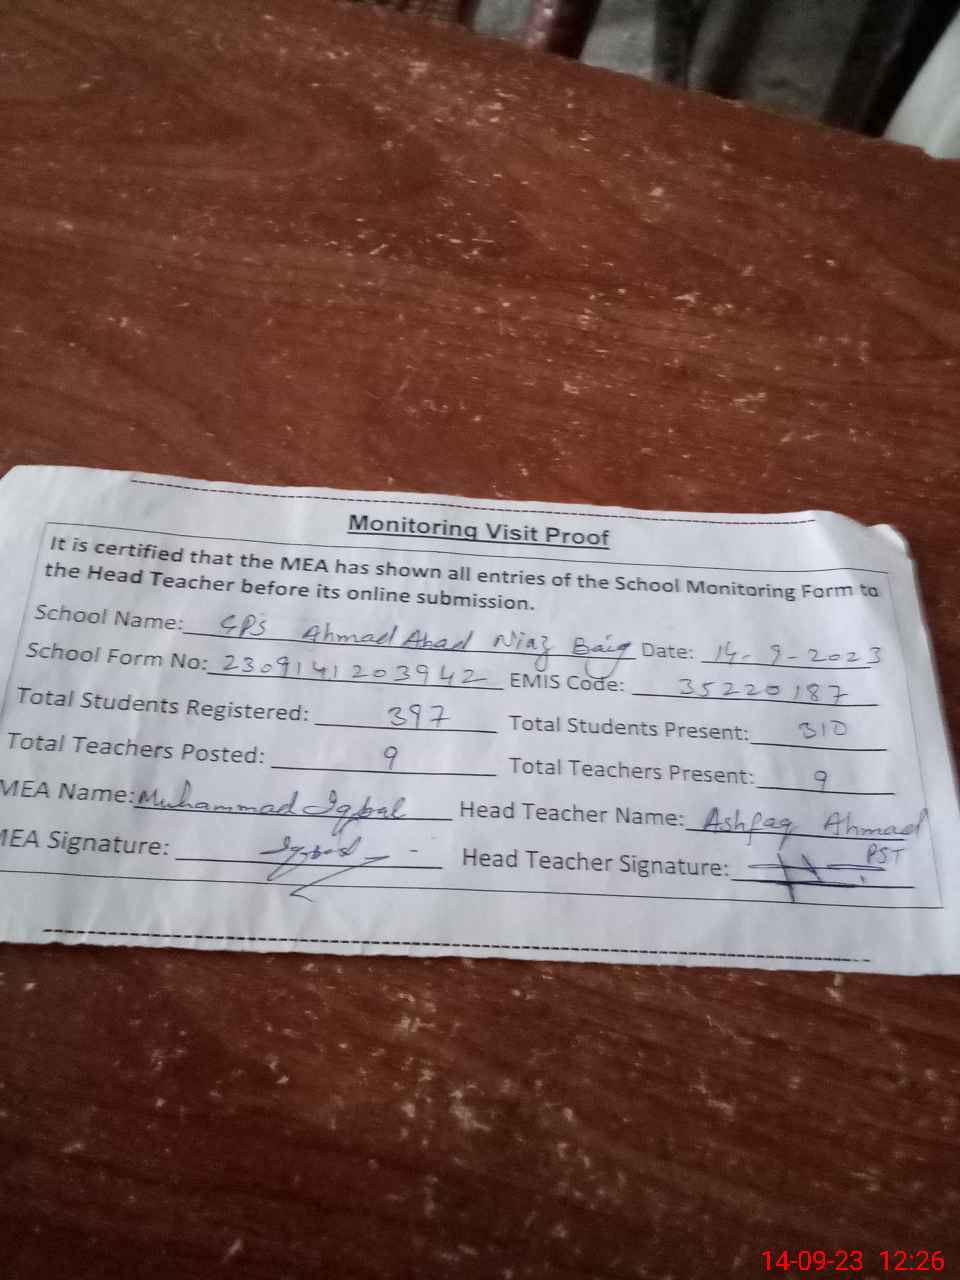 Monitoring Visit Proof
It is certified that the MEA has shown all entries of the School Monitoring Form to
the Head Teacher before its online submission.
School Name: GPS Ahmad Abad Niaz Baig Date: 14-9-2023
School Form No: 2309141203942 EMIS Code: 35220187
Total Students Registered: 397 Total Students Present: 310
Total Teachers Posted: 9 Total Teachers Present: 9
MEA Name: Muhammad Iqbal Head Teacher Name: Ashfaq Ahmad
MEA Signature: Iqbal Head Teacher Signature: PST
14-09-23 12:26